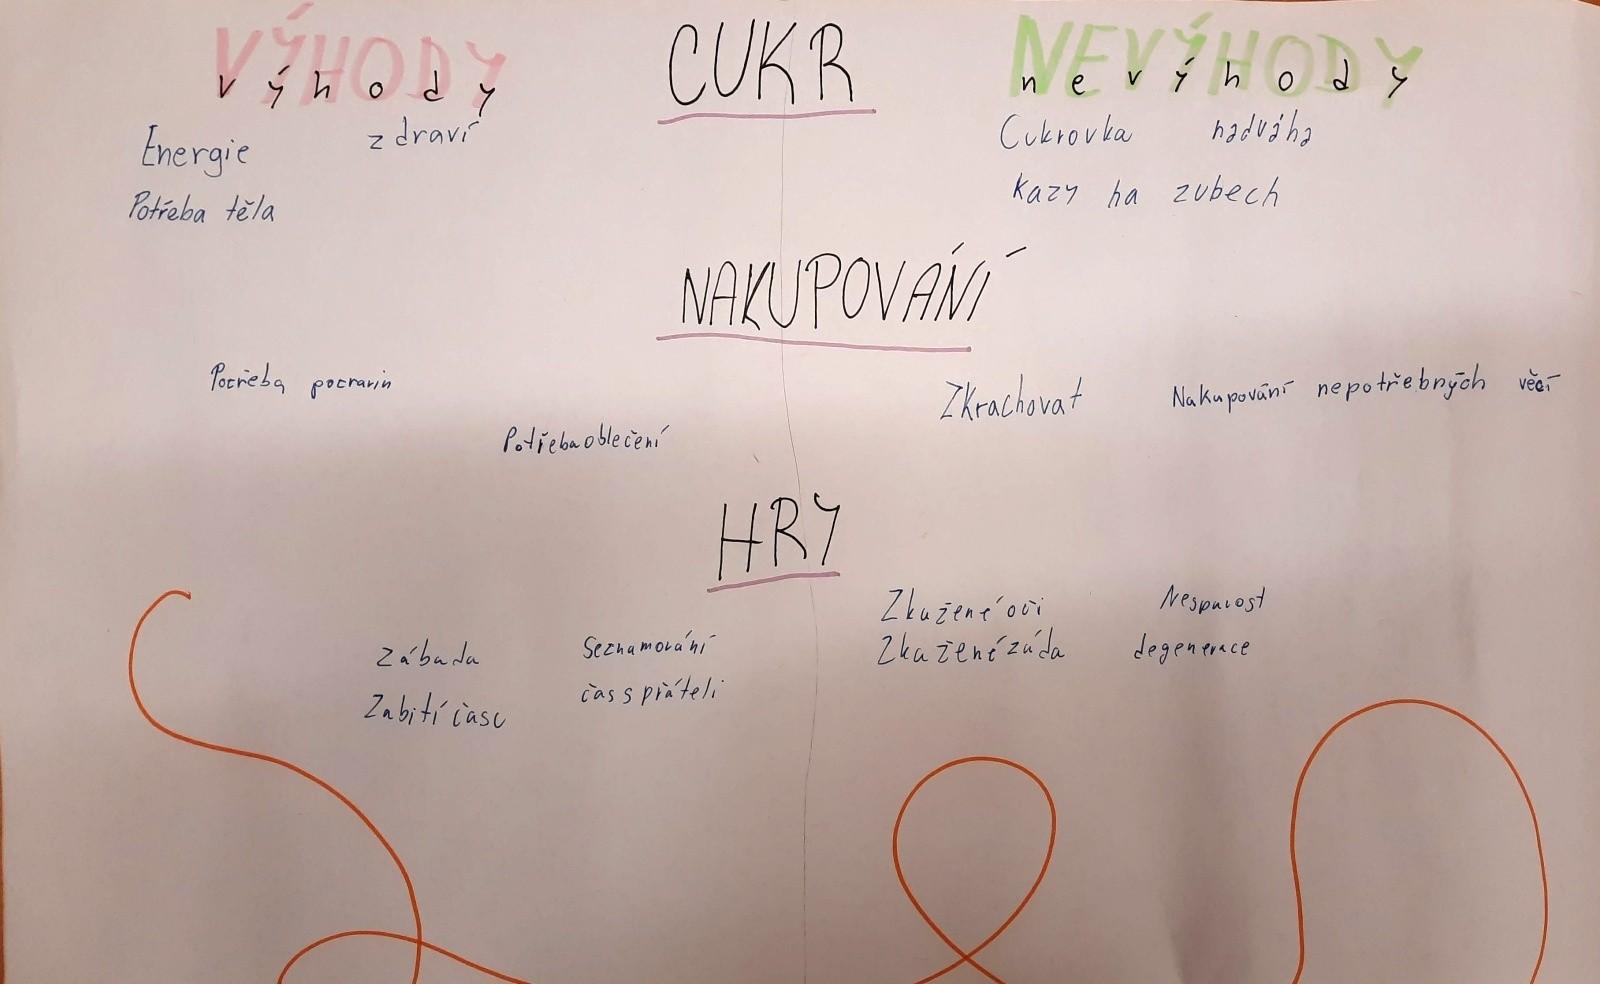 VÝHODY CUKR NEVÝHODY
výhody nevýhody
Energie zdraví Cukrovka nadváha
Potřeba těla kazy na zubech
NAKUPOVÁNÍ
Potřeba potravin Zkrachovat Nakupování nepotřebných věcí
Potřeba oblečení
HRY
Zkažené oči Nespavost
Zábava Seznamování Zkažené záda degenerace
Zabití času čas s přáteli